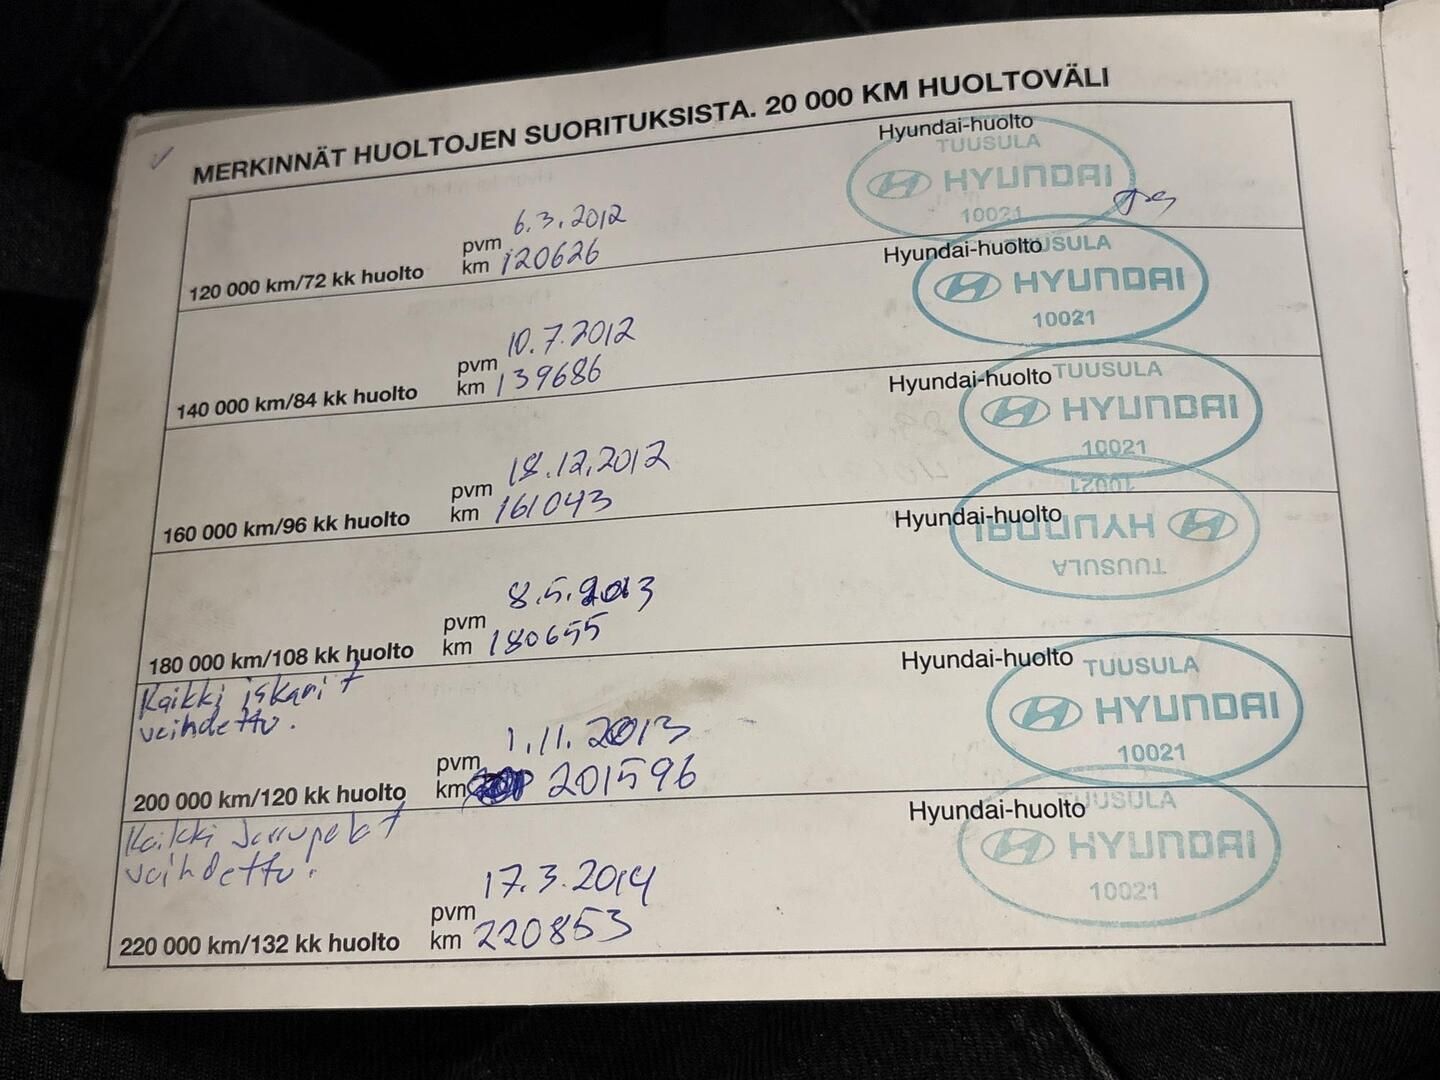 MERKINNÄT HUOLTOJEN SUORITUKSISTA. 20 000 KM HUOLTOVÄLI
Hyundai-huolto
TUUSULA
HYUNDAI
10021
120 000 km/72 kk huolto
pvm 6.3.2012
km 120626
Hyundai-huolto
TUUSULA
HYUNDAI
10021
140 000 km/84 kk huolto
pvm 10.7.2012
km 139686
Hyundai-huolto
TUUSULA
HYUNDAI
10021
160 000 km/96 kk huolto
pvm 18.12.2012
km 161043
Hyundai-huolto
10021
HYUNDAI
TUUSULA
180 000 km/108 kk huolto
pvm 8.5.2013
km 180655
Kaikki iskarit
vaihdettu.
Hyundai-huolto
TUUSULA
HYUNDAI
10021
200 000 km/120 kk huolto
pvm 1.11.2013
km 201596
Kaikki Jarrupalat
vaihdettu.
Hyundai-huolto
TUUSULA
HYUNDAI
10021
220 000 km/132 kk huolto
pvm 17.3.2014
km 220853